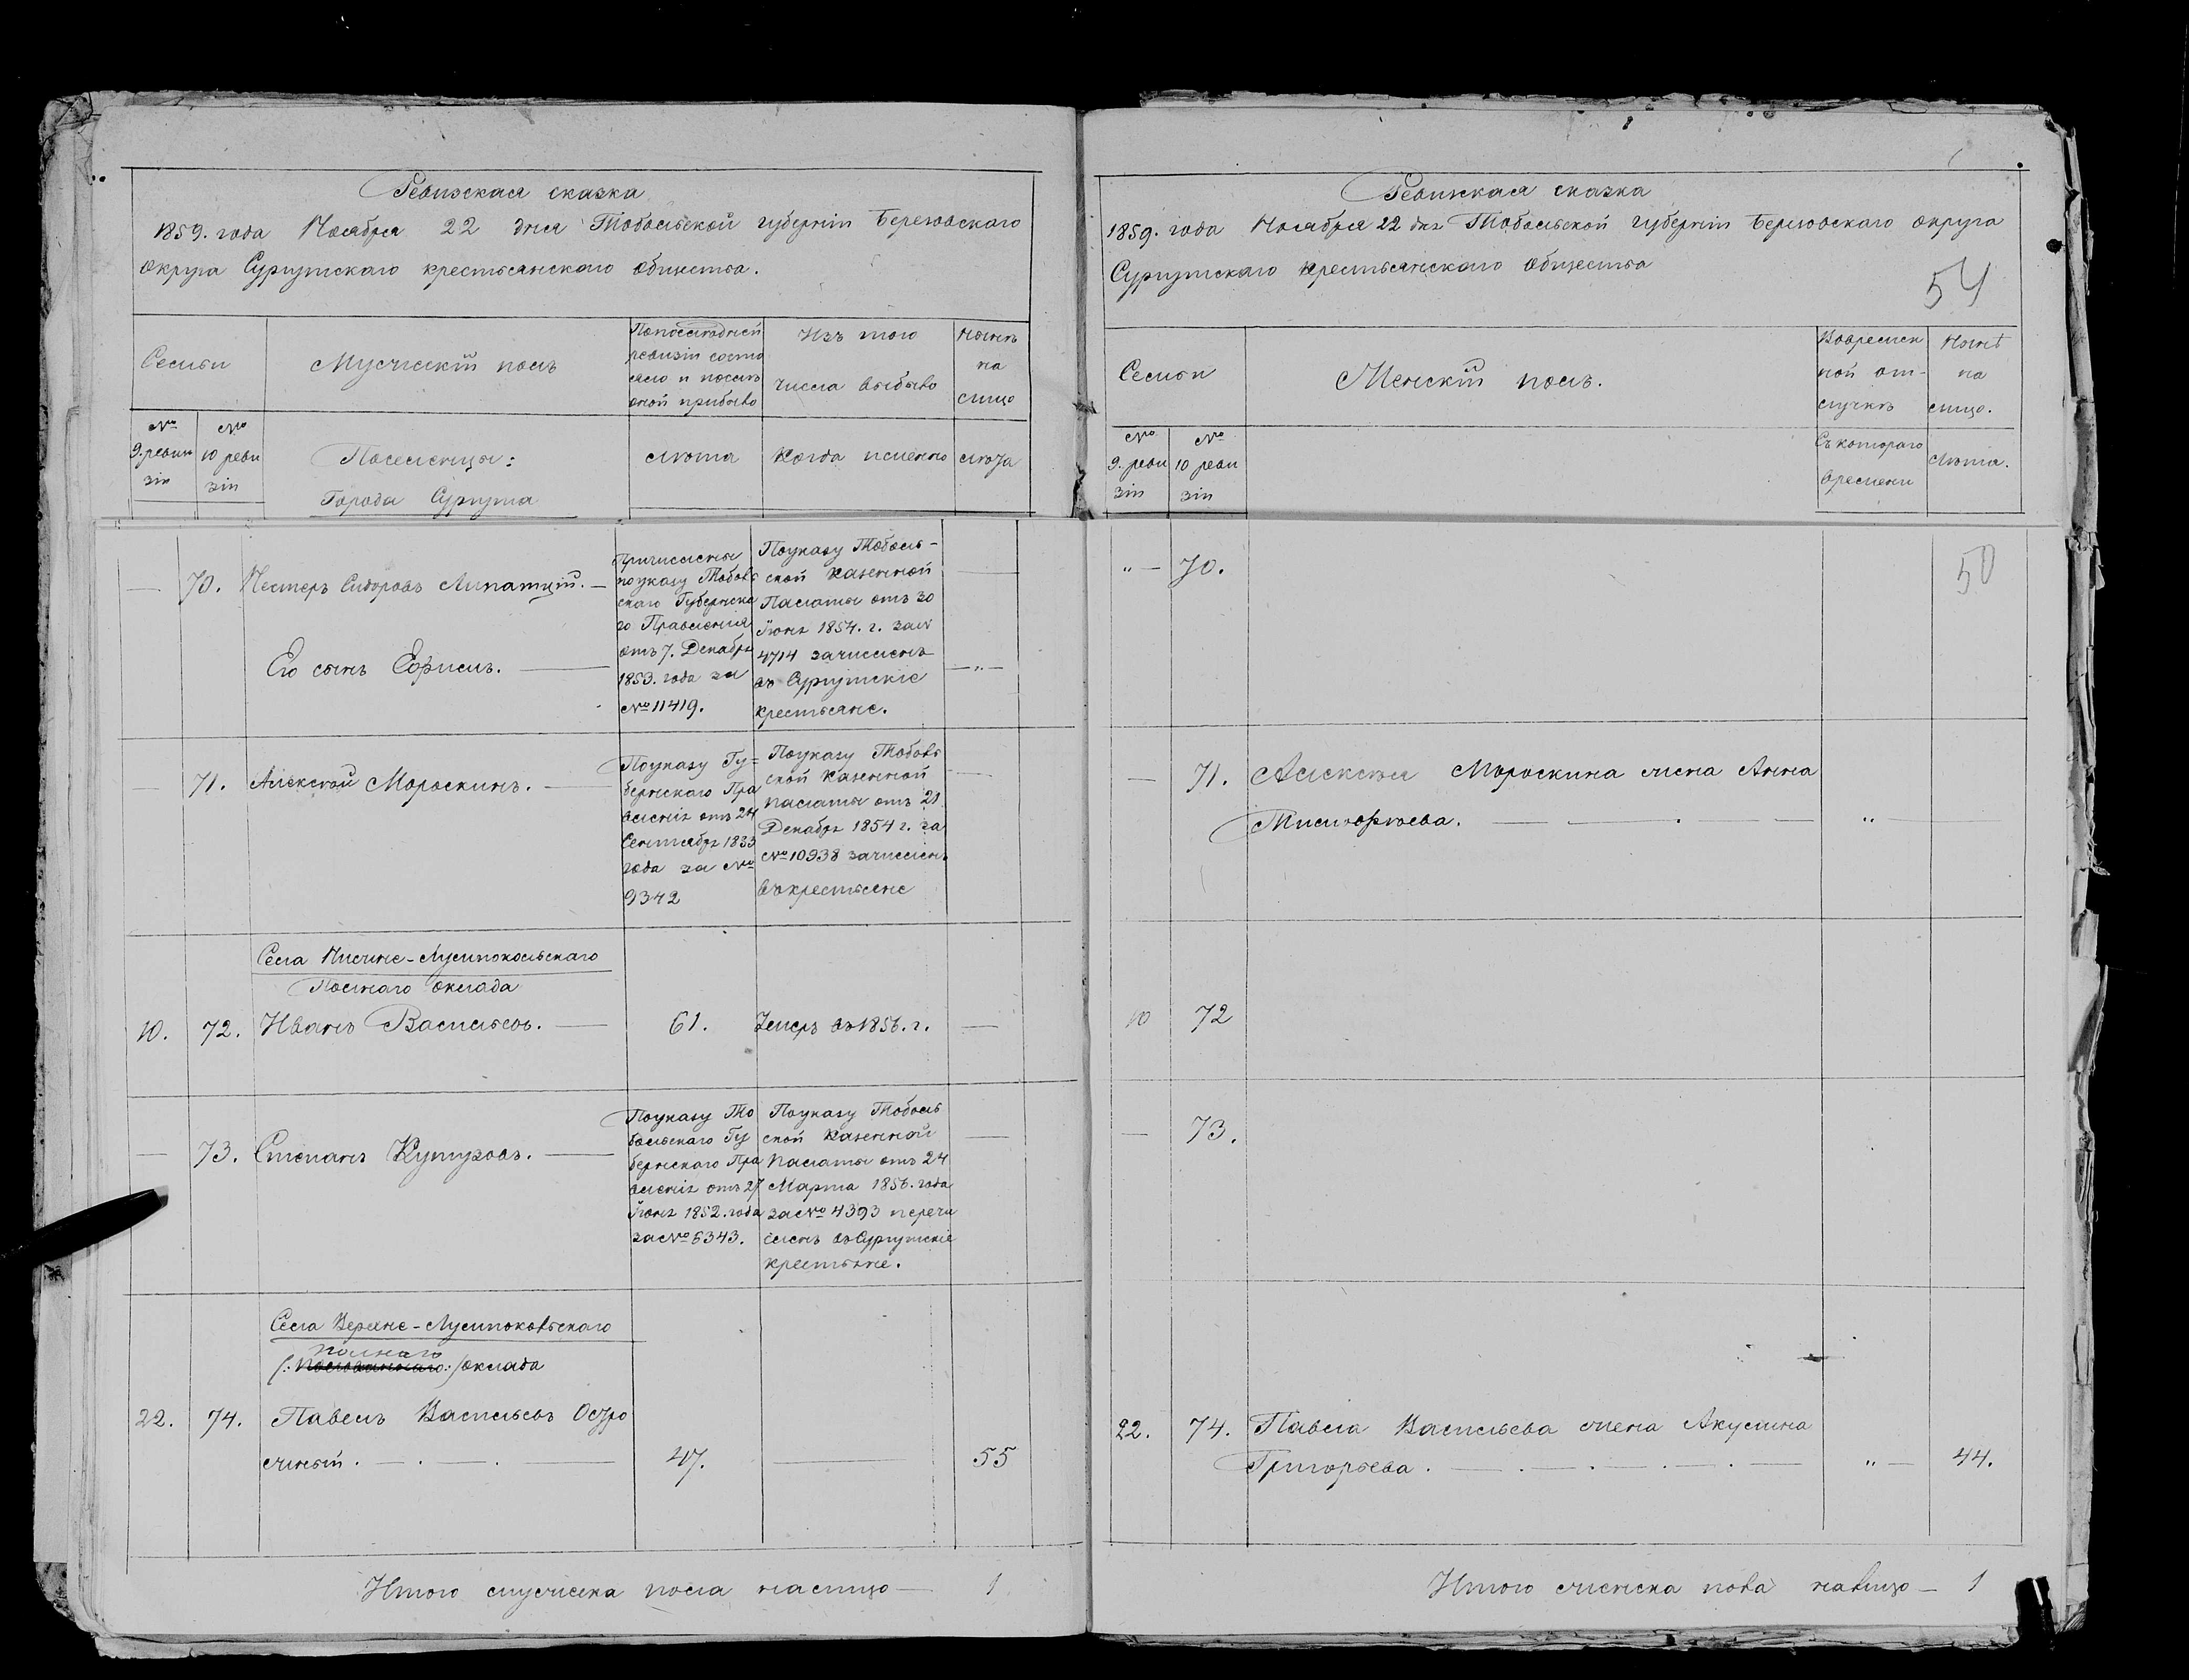 Ревизская сказка
1859. года Ноября 22 дня Тобольской губернiи Березовскаго
округа Сургутскаго крестьянскаго общества.
Семьи
Мужескiй полъ
По последней
ревизiи состо
яло и после
оной прибыло
Изъ того
числа выбыло
Ныне
на
лицо
№
9. реви
зiи
№
10 реви
зiи
Поселенцы:
Города Сургута
лѣта
Когда именно
лѣта
— 70. Нестеръ Сидоровъ Липатцiй. —
Его сынъ Ефримъ. —
Причислены
по указу Тоболь
скаго Губернска
го Правленiя
отъ 7. Декабря
1853. года за
№ 11419.
По указу Тоболь-
ской Казенной
Палаты отъ 30
Iюня 1854. г. за №
4714 зачисленъ
въ Сургутскiе
крестьяне.
— 71. Алексѣй Мороскинъ. —
По указу Гу=
бернскаго Пра
вленiя отъ 24
Сентября 1833
года за №
9342
По указу Тоболь
ской Казенной
палаты отъ 21
Декабря 1854 г. за
№ 10938 зачисленъ
въ крестьяне
Села Нижне-Лумпокольскаго
Полнаго оклада
10. 72. Иванъ Васильевъ. — 61. Умеръ въ 1856. г. —
— 73. Степанъ Кутузовъ. —
По указу То
больскаго Гу
бернскаго Пра
вленiя отъ 27
Iюня 1852. года
за № 6343.
По указу Тоболь
ской Казенной
палаты отъ 24
Марта 1856. года
за № 4393 перечи
сленъ въ Сургутскiе
крестьяне.
Села Верхне-Лумпокольскаго
полнаго
оклада
22. 74. Павелъ Васильевъ Остро
жный. — 47. — 55
Итого мужеска пола на лицо — 1
Ревизская сказка
1859. года Ноября 22 дня Тобольской губернiи Березовскаго округа
Сургутскаго крестьянскаго общества
54
Семьи
Женскiй полъ.
Во времен
ной от-
лучкѣ
Нынѣ
на
лицо.
№
9. реви
зiи
№
10 реви
зiи
Съ котораго
времени
Лѣта.
" — 70.
50
— 71. Алексѣя Мороскина жена Анна
Тимофѣева. — "
10 72
— 73.
22. 74. Павла Васильева жена Акулина
Григорьева. — " — 44.
Итого женска пола налицо — 1